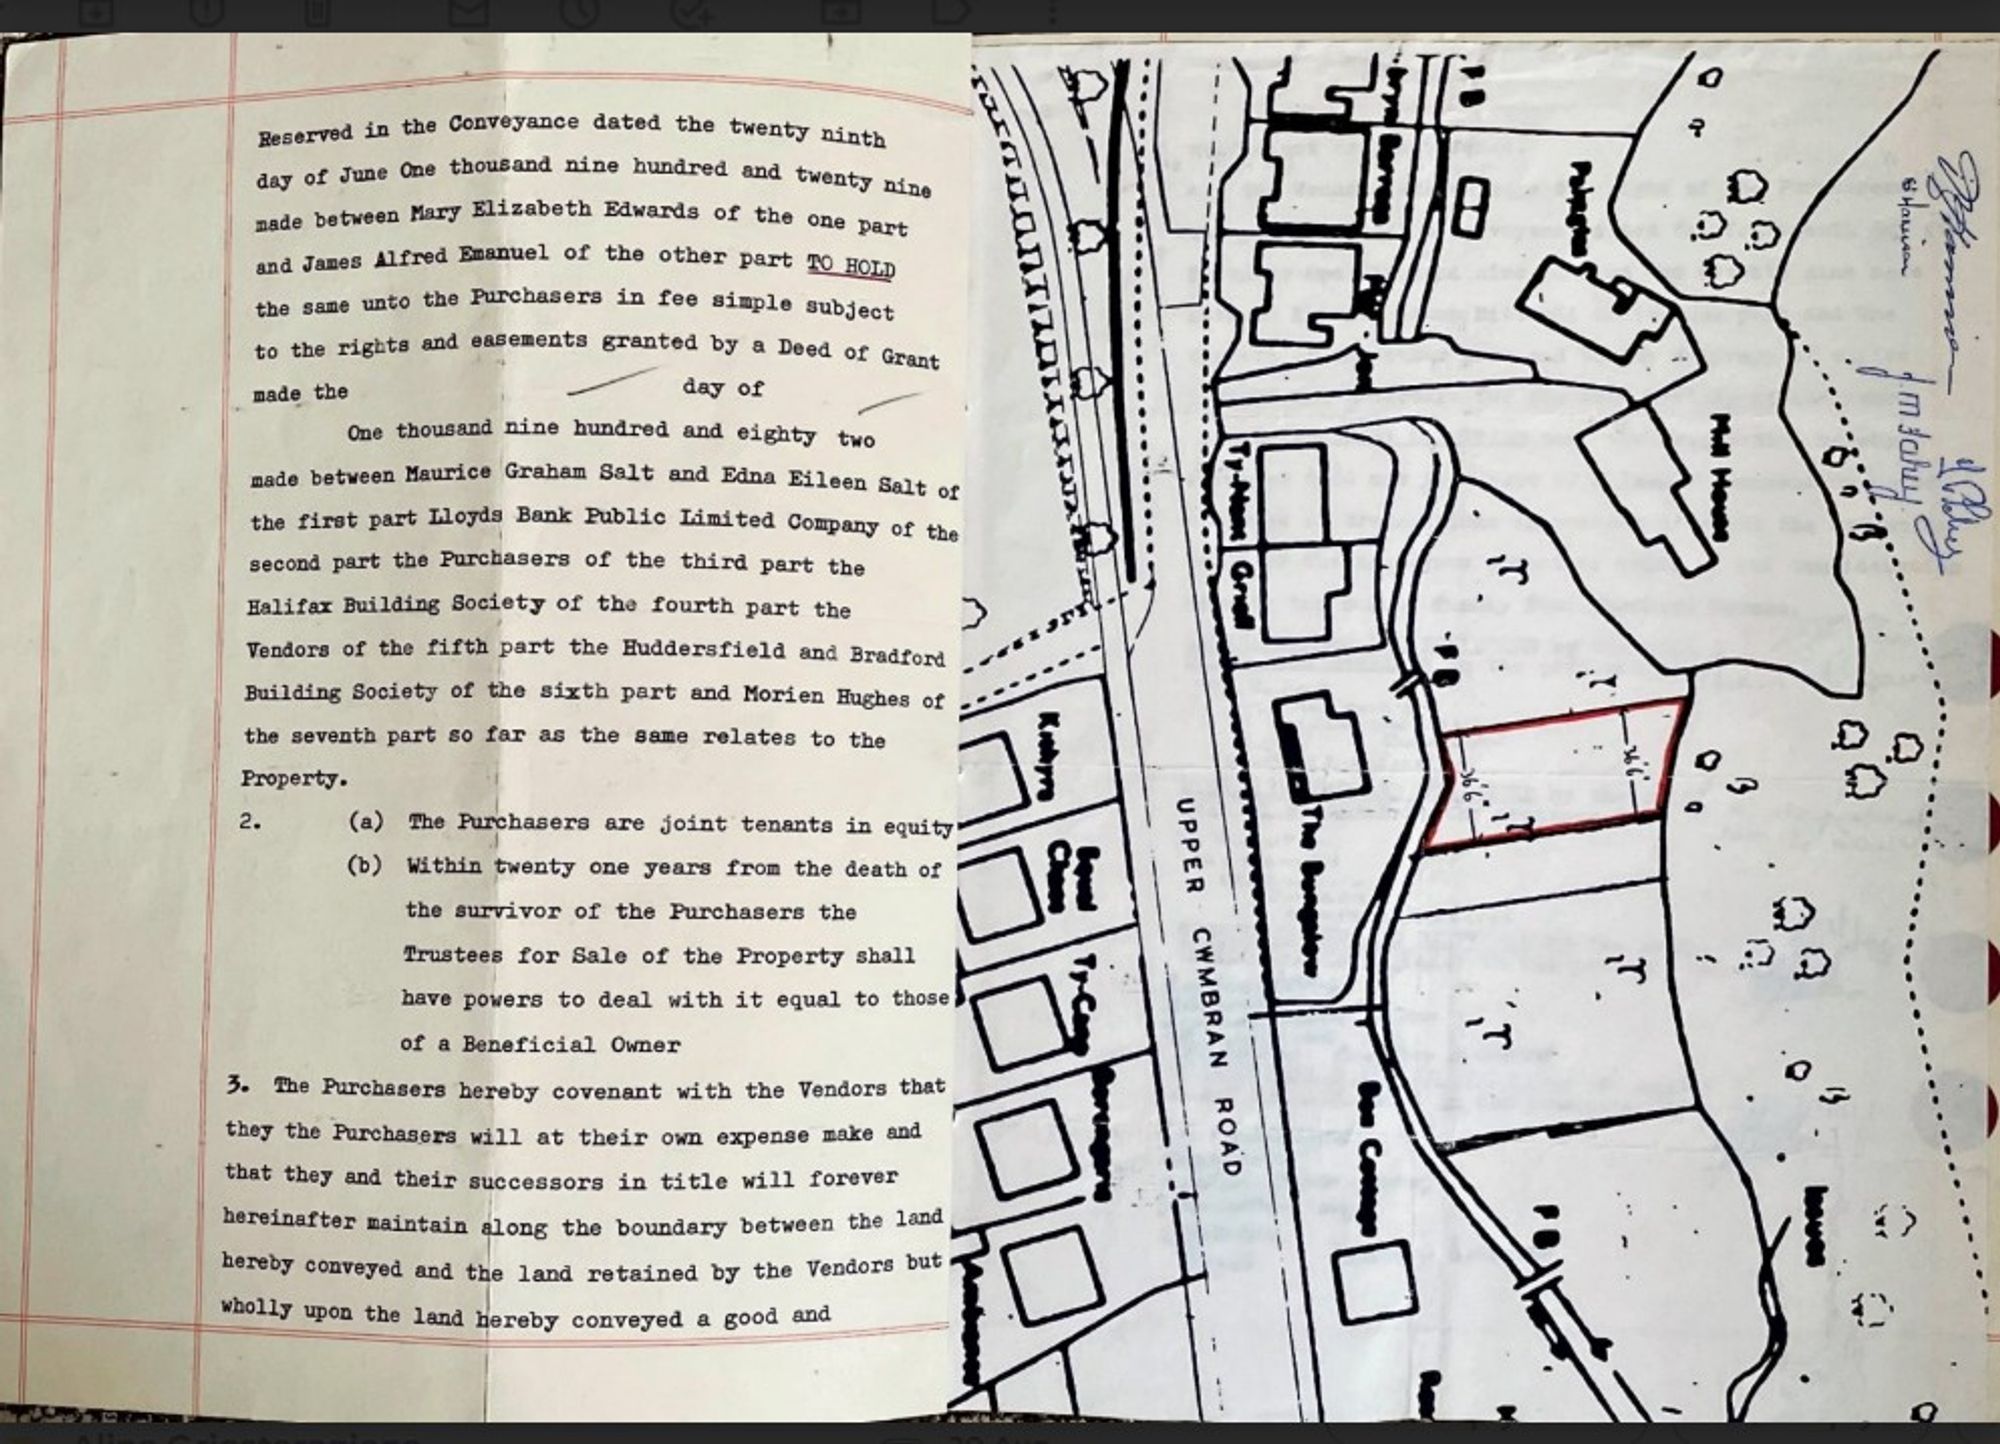 Reserved in the Conveyance dated the twenty ninth
day of June One thousand nine hundred and twenty nine
made between Mary Elizabeth Edwards of the one part
and James Alfred Emanuel of the other part TO HOLD
the same unto the Purchasers in fee simple subject
to the rights and easements granted by a Deed of Grant
made the day of
One thousand nine hundred and eighty two
made between Maurice Graham Salt and Edna Eileen Salt of
the first part Lloyds Bank Public Limited Company of the
second part the Purchasers of the third part the
Halifax Building Society of the fourth part the
Vendors of the fifth part the Huddersfield and Bradford
Building Society of the sixth part and Morien Hughes of
the seventh part so far as the same relates to the
Property.
2. (a) The Purchasers are joint tenants in equity
(b) Within twenty one years from the death of
the survivor of the Purchasers the
Trustees for Sale of the Property shall
have powers to deal with it equal to those
of a Beneficial Owner
3. The Purchasers hereby covenant with the Vendors that
they the Purchasers will at their own expense make and
that they and their successors in title will forever
hereinafter maintain along the boundary between the land
hereby conveyed and the land retained by the Vendors but
wholly upon the land hereby conveyed a good and
F B
Mill House
Ty-Nant
F B
36'6"
36'6"
The Bungalow
UPPER CWMBRAN ROAD
Ty-Coed
Box Cottage
Issues
F B